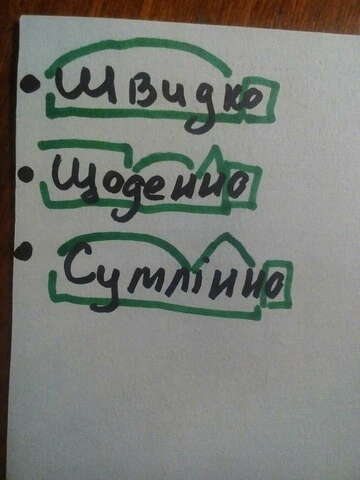 • Швидко
• Щоденно
• Сумлінно